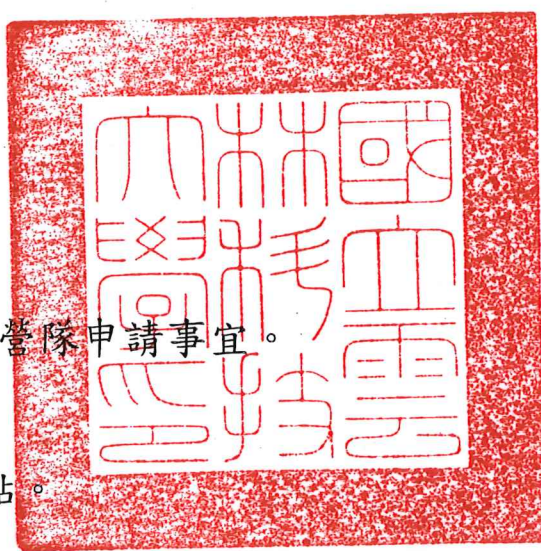 國立雲
林科技
大學印
營隊申請事宜。
點。